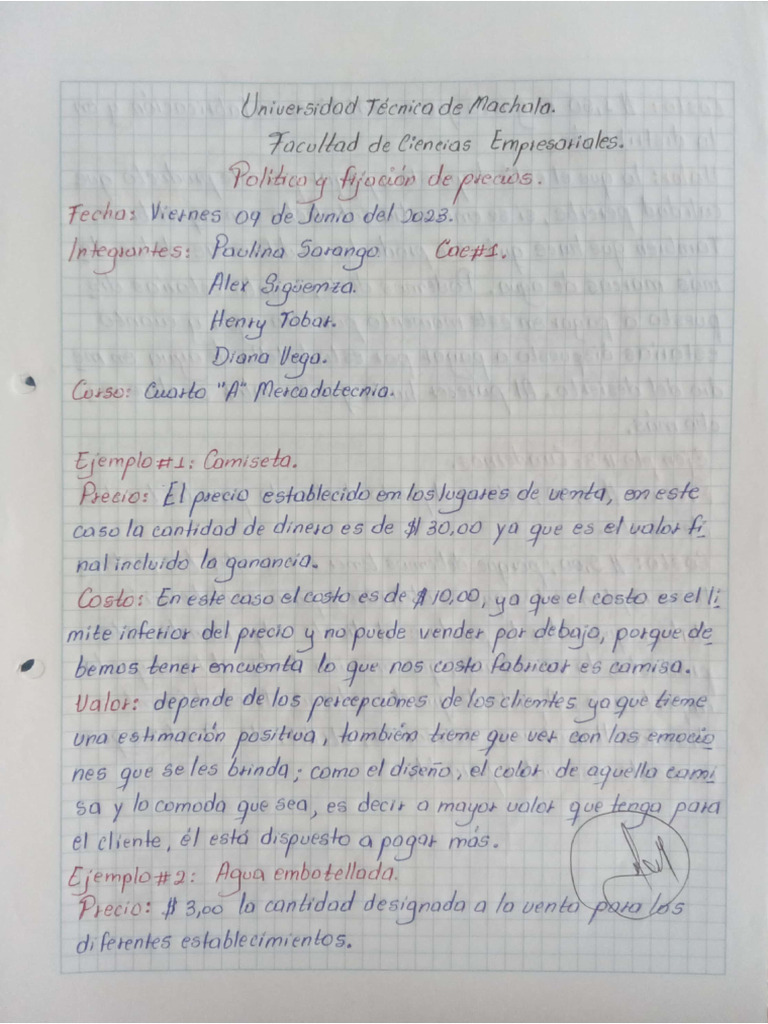 Universidad Técnica de Machala.
Facultad de Ciencias Empresariales.
Politica y fijación de precios.
Fecha: Viernes 09 de Junio del 2023.
Integrantes: Paulina Sarango Cae#1.
Alex Sigüenza.
Henry Tobar.
Diana Vega.
Curso: Cuarto "A" Mercadotecnia.
Ejemplo#1: Camiseta.
Precio: El precio establecido en los lugares de venta, en este
caso la cantidad de dinero es de $ 30,00 ya que es el valor fi
nal incluido la ganancia.
Costo: En este caso el costo es de $ 10,00, ya que el costo es el lí
mite inferior del precio y no puede vender por debajo, porque de
bemos tener encuenta lo que nos costo fabricar es camisa.
Valor: depende de los percepciones de los clientes ya que tieme
una estimación positiva, también tieme que ver con las emocio
nes que se les brinda; como el diseño, el color de aquella cami
sa y lo comoda que sea, es decir a mayor valor que tenga para
el cliente, él está dispuesto a pagar más.
Ejemplo#2: Agua embotellada.
Precio: $ 3,00 la cantidad designada a la venta para los
diferentes establecimientos.